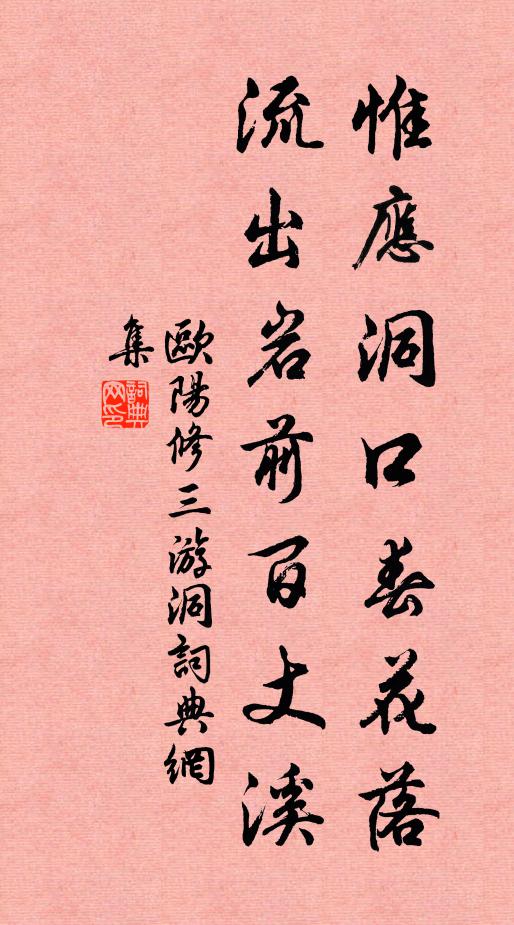 惟應洞口春花落
流出岩前百丈溪
歐陽修三游洞詞典網
集
詞典
网印